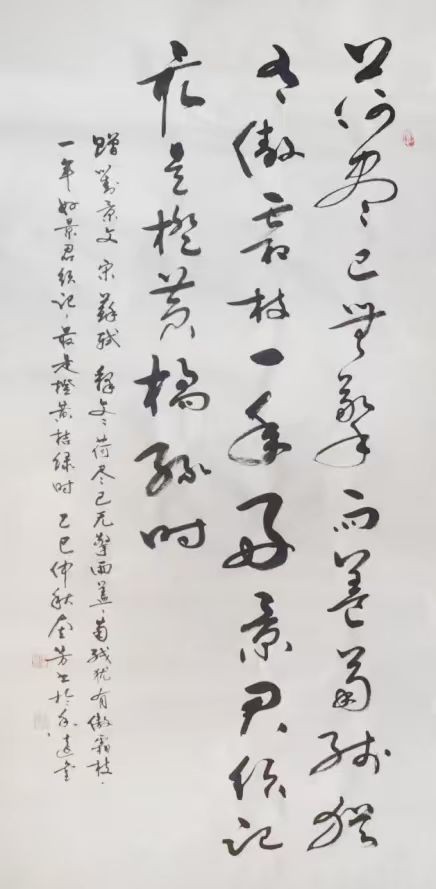 荷尽已無擎雨盖菊残猶
有傲霜枝一年好景君须记
最是橙黄橘绿时
赠劉景文 宋 蘇軾 释文：荷尽已无擎雨盖，菊残犹有傲霜枝，
一年好景君须记，最是橙黄桔绿时 乙巳仲秋 芳书於